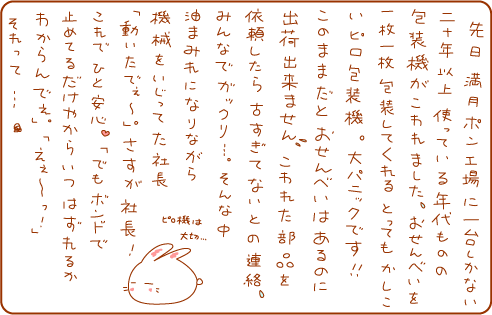 先日満月ポン工場に一台しかない
二十年以上使っている年代ものの
包装機がこわれました。おせんべいを
一枚一枚包装してくれるとってもかしこ
いピロ包装機。大パニックです!!
このままだとおせんべいはあるのに
出荷出来ません。こわれた部品を
依頼したら古すぎてないとの連絡。
みんなでガックリ…。そんな中
油まみれになりながら
機械をいじってた社長
「動いたでぇ〜」。さすが社長!
これでひと安心♥「でもボンドで
止めてるだけやからいつはずれるか
わからんでぇ。」「えぇ〜っ!」
それって…
ピロ機は
大切…